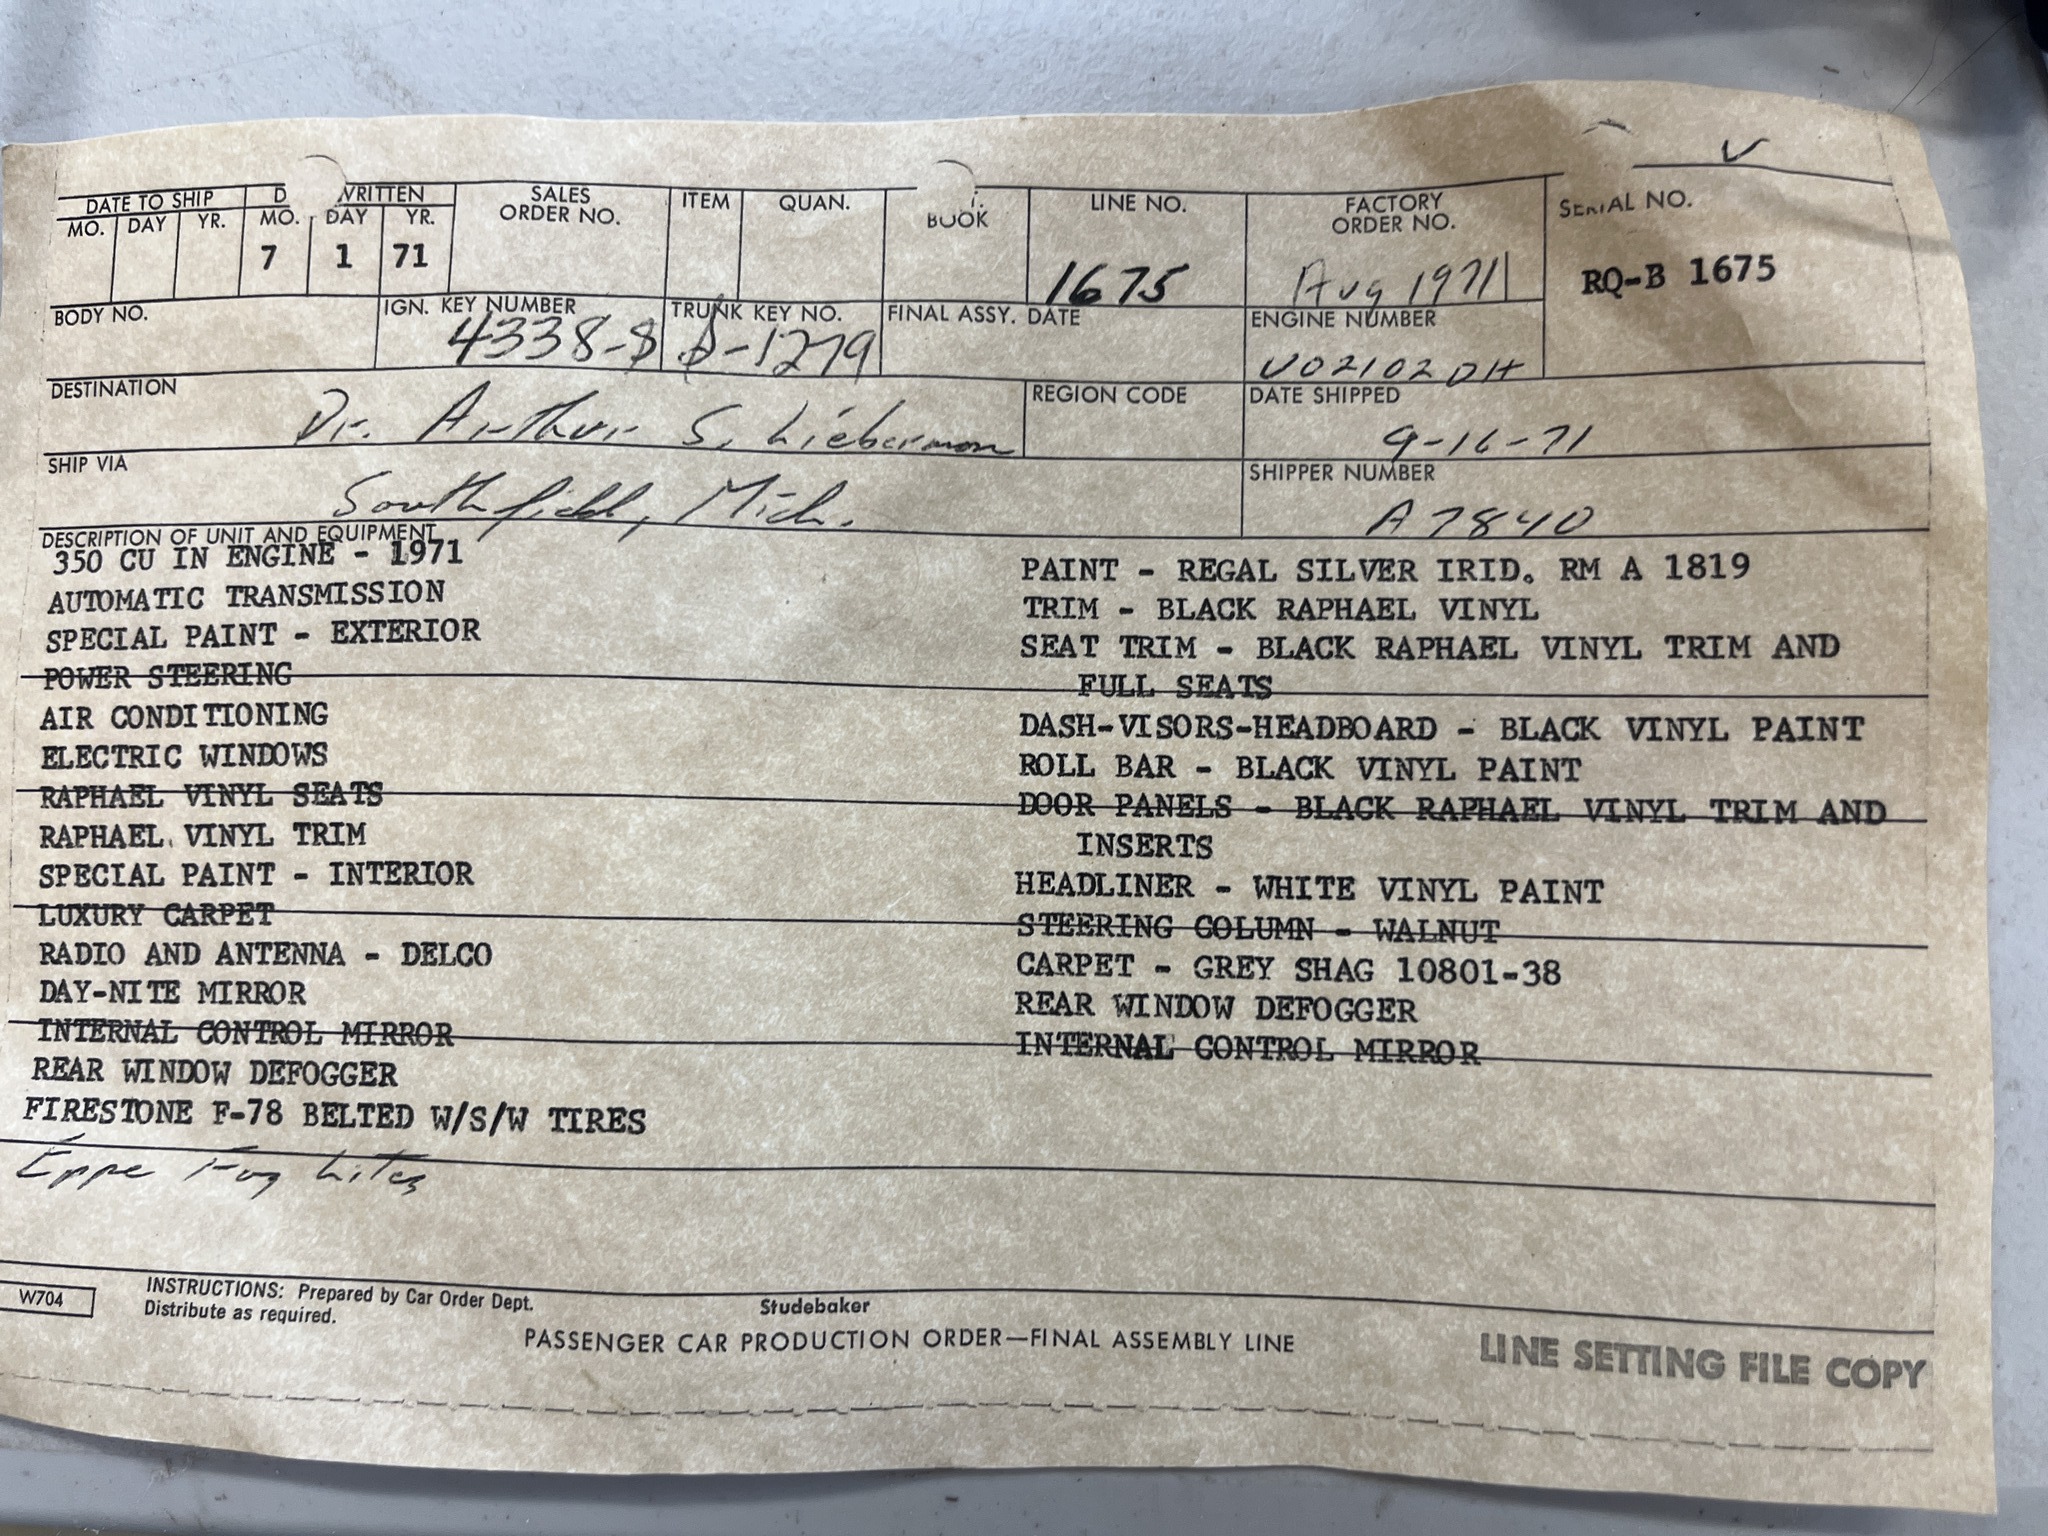 DATE TO SHIP D WRITTEN SALES ORDER NO. ITEM QUAN. BOOK LINE NO. FACTORY ORDER NO. SERIAL NO.
MO. DAY YR. MO. DAY YR.
7 1 71 1675 Aug 1971 RQ-B 1675
BODY NO. IGN. KEY NUMBER TRUNK KEY NO. FINAL ASSY. DATE ENGINE NUMBER
4338-S S-1279 V02102DH
DESTINATION REGION CODE DATE SHIPPED
Dr. Arthur S. Lieberman 9-16-71
SHIP VIA SHIPPER NUMBER
Southfield, Mich. A7840
DESCRIPTION OF UNIT AND EQUIPMENT
350 CU IN ENGINE - 1971
AUTOMATIC TRANSMISSION
SPECIAL PAINT - EXTERIOR
POWER STEERING
AIR CONDITIONING
ELECTRIC WINDOWS
RAPHAEL VINYL SEATS
RAPHAEL VINYL TRIM
SPECIAL PAINT - INTERIOR
LUXURY CARPET
RADIO AND ANTENNA - DELCO
DAY-NITE MIRROR
INTERNAL CONTROL MIRROR
REAR WINDOW DEFOGGER
FIRESTONE F-78 BELTED W/S/W TIRES
Eppe Fog Lites
PAINT - REGAL SILVER IRID. RM A 1819
TRIM - BLACK RAPHAEL VINYL
SEAT TRIM - BLACK RAPHAEL VINYL TRIM AND
FULL SEATS
DASH-VISORS-HEADBOARD - BLACK VINYL PAINT
ROLL BAR - BLACK VINYL PAINT
DOOR PANELS - BLACK RAPHAEL VINYL TRIM AND
INSERTS
HEADLINER - WHITE VINYL PAINT
STEERING COLUMN - WALNUT
CARPET - GREY SHAG 10801-38
REAR WINDOW DEFOGGER
INTERNAL CONTROL MIRROR
W704
INSTRUCTIONS: Prepared by Car Order Dept.
Distribute as required.
Studebaker
PASSENGER CAR PRODUCTION ORDER—FINAL ASSEMBLY LINE
LINE SETTING FILE COPY